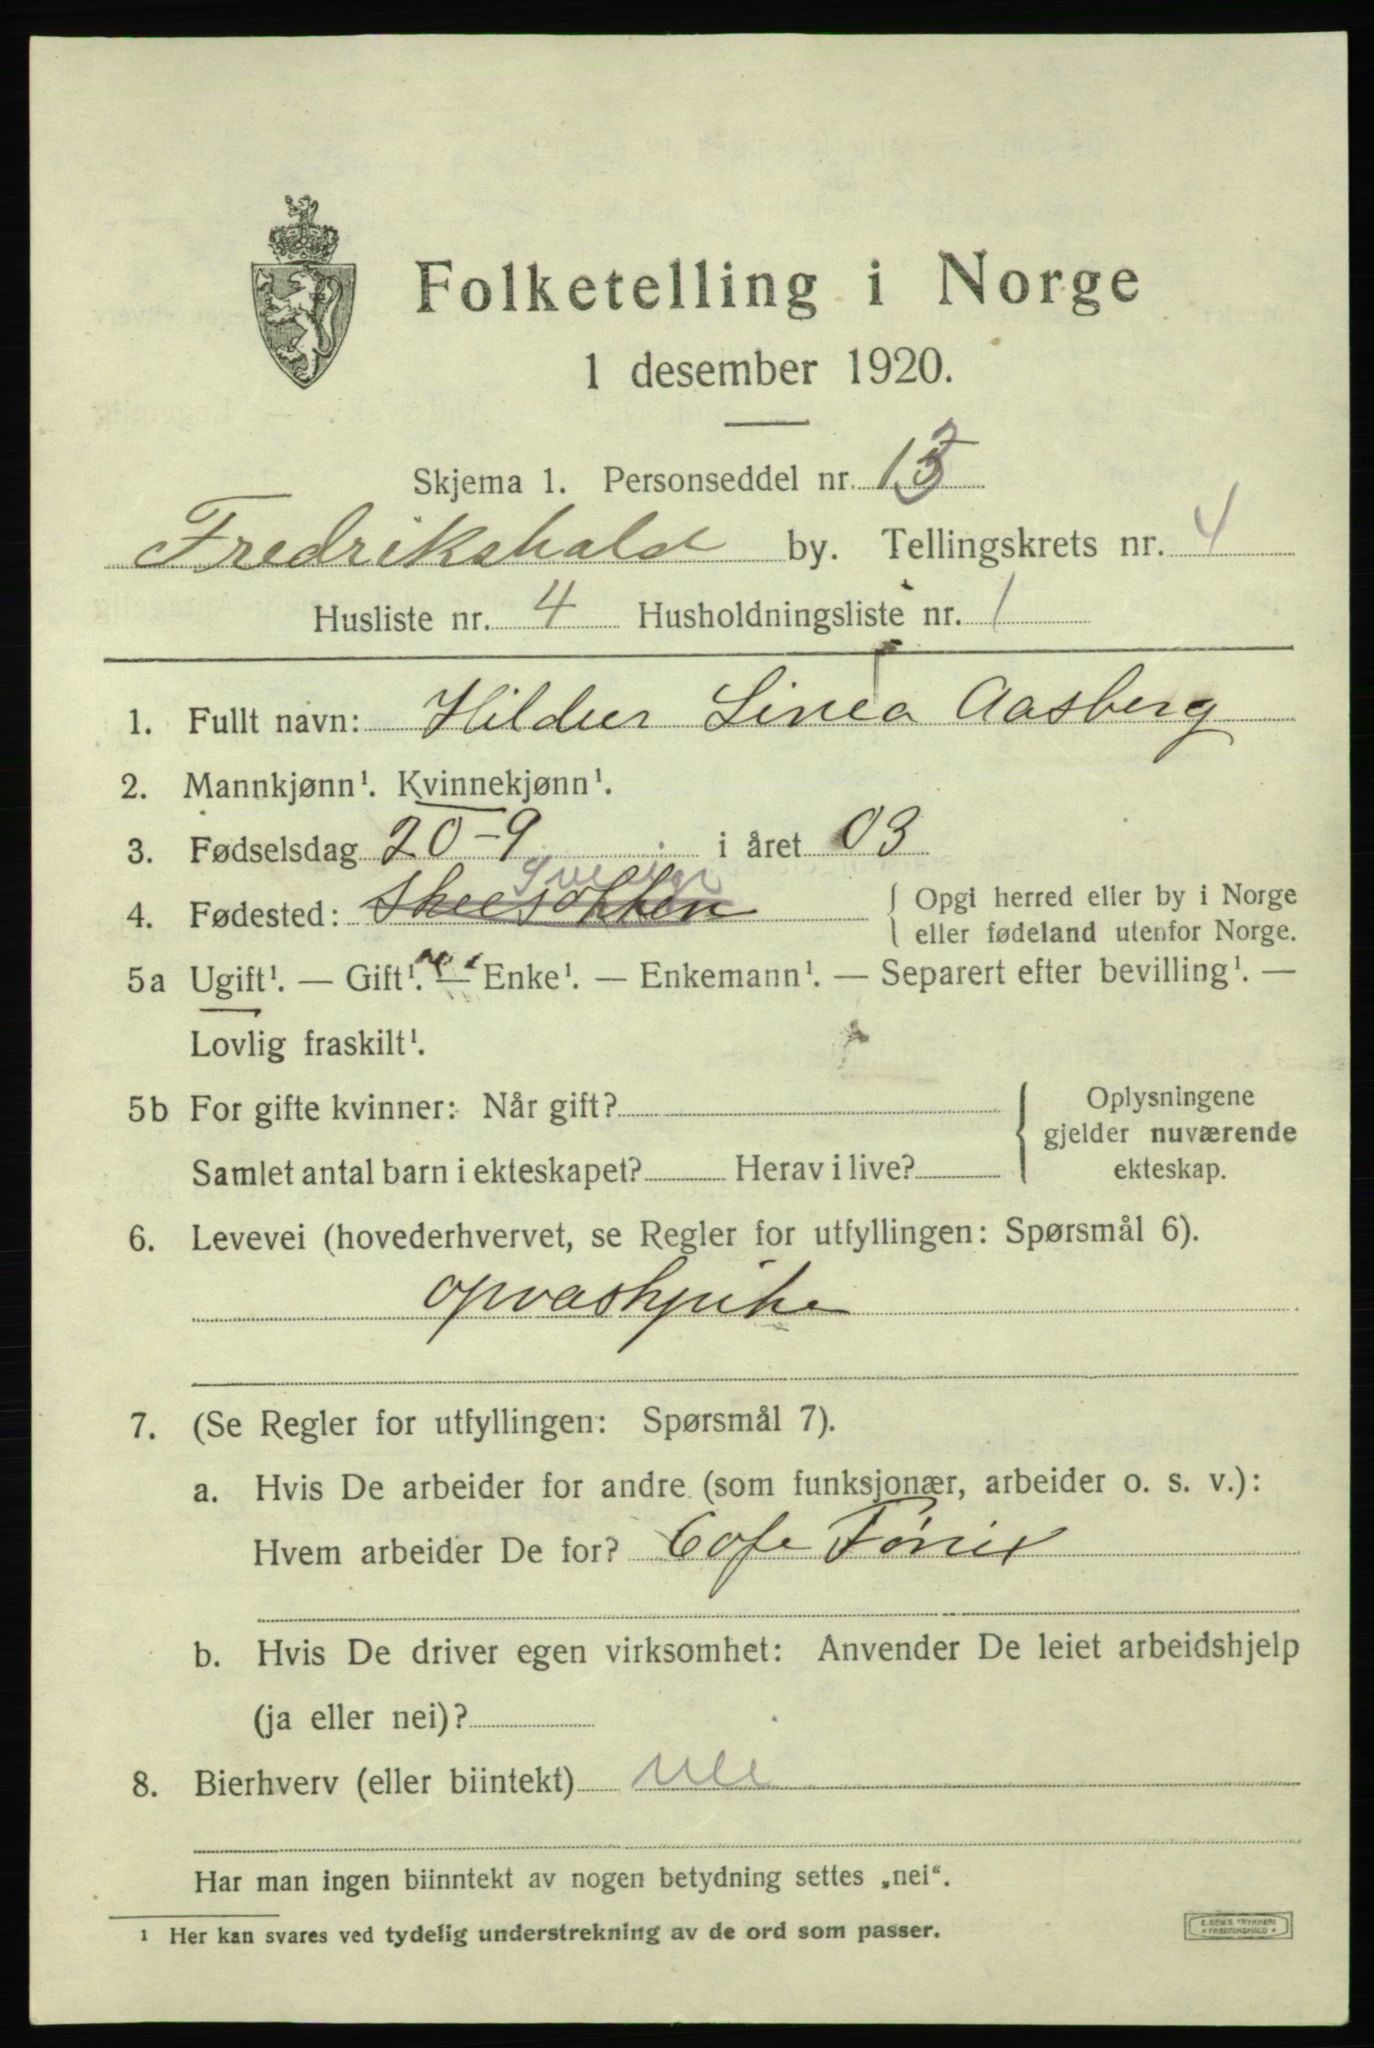 Folketelling i Norge
1 desember 1920.
Skjema 1. Personseddel nr. 13
Fredrikshald by. Tellingskrets nr. 4
Husliste nr. 4 Husholdningsliste nr. 1
1. Fullt navn: Hildur Linea Aasberg
2. Mannkjønn¹. Kvinnekjønn¹.
3. Fødselsdag 20-9 i året 03
Sverige
4. Fødested: Skeesokken { Opgi herred eller by i Norge
eller fødeland utenfor Norge.
5a Ugift¹. — Gift¹. — Enke¹. — Enkemann¹. — Separert efter bevilling¹. —
Lovlig fraskilt¹.
5b For gifte kvinner: Når gift? { Oplysningene
gjelder nuværende
Samlet antal barn i ekteskapet? Herav i live? ekteskap.
6. Levevei (hovederhvervet, se Regler for utfyllingen: Spørsmål 6).
opvaskpike
7. (Se Regler for utfyllingen: Spørsmål 7).
a. Hvis De arbeider for andre (som funksjonær, arbeider o. s. v.):
Hvem arbeider De for? Cafe Fønix
b. Hvis De driver egen virksomhet: Anvender De leiet arbeidshjelp
(ja eller nei)?
8. Bierhverv (eller biintekt) nei
Har man ingen biinntekt av nogen betydning settes „nei“.
¹ Her kan svares ved tydelig understrekning av de ord som passer.
TRYKKERI
FREDRIKSHALD